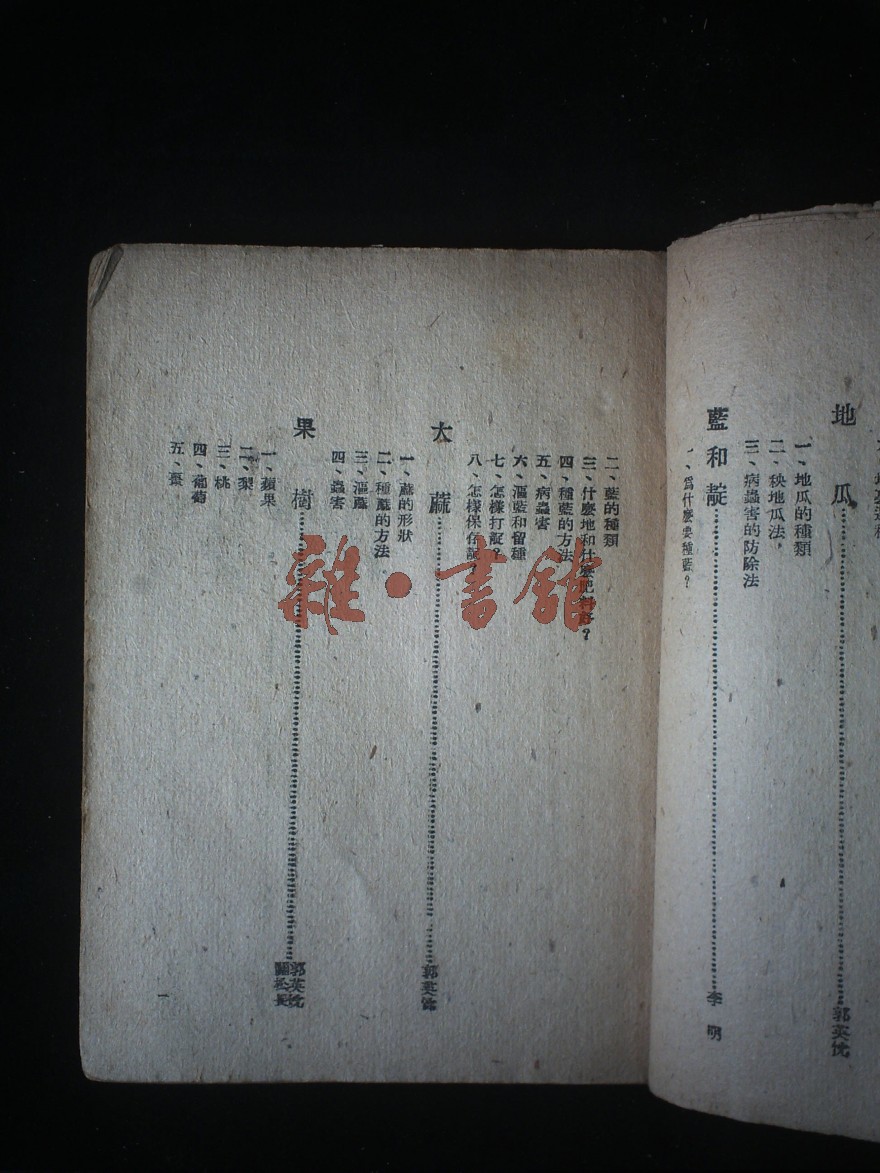 地瓜……郭英忱
一、地瓜的種類
二、秧地瓜法，
三、病蟲害的防除法
藍和靛……李明
一、爲什麽要種藍？
二、藍的種類
三、什麽地和什麽肥料好？
四、種藍的方法
五、病蟲害
六、漚藍和留種
七、怎樣打靛？
八、怎樣保存靛？
大蔴……郭英忱
一、蔴的形狀
二、種蔴的方法
三、漚蔴
四、蟲害
果樹……郭英忱
關松長
一、蘋果
二、梨
三、桃
四、葡萄
五、棗
一
雜·書館